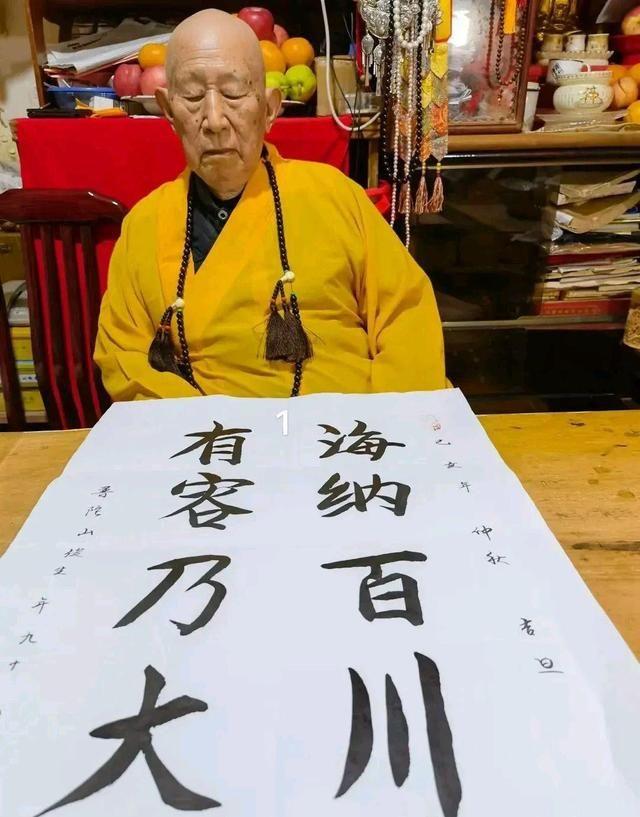 己亥年 仲秋 吉旦
海纳百川
有容乃大
普陀山 生 年九十
1